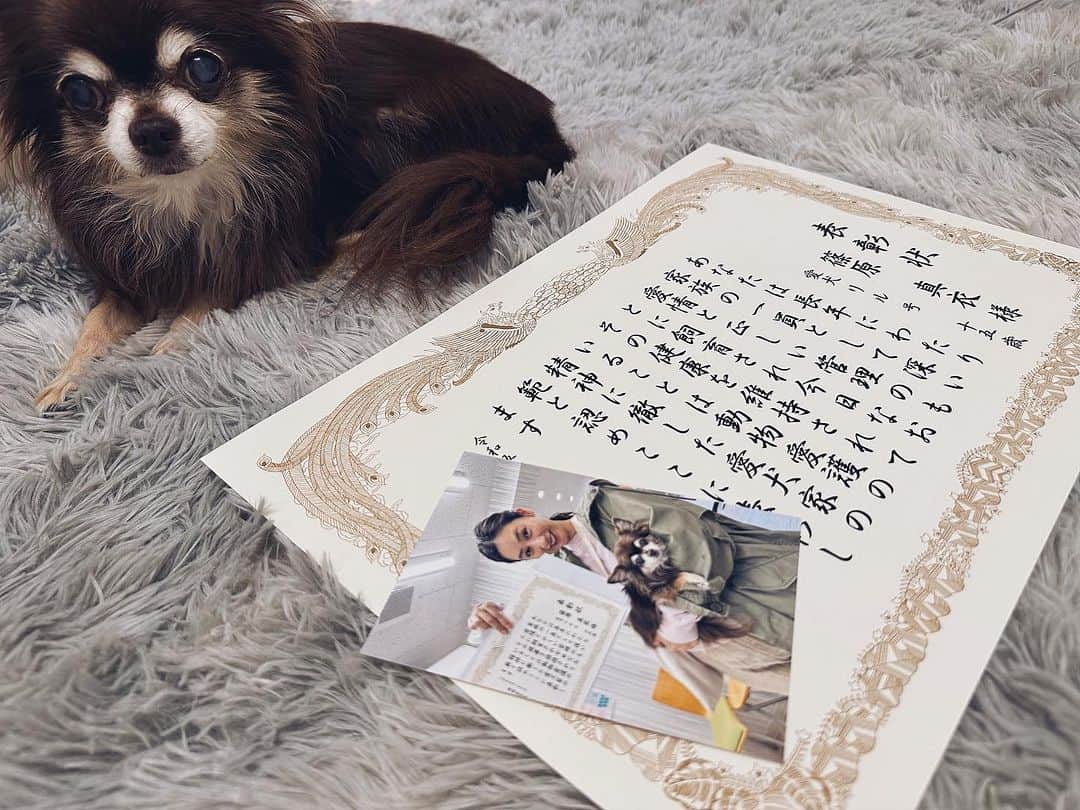 表彰状
篠原 真衣 様
愛犬 リル号 十五歳
あなたは長年にわたり
家族の一員として深い
愛情と正しい管理のも
とに飼育され今日なお
その健康を維持されて
いることは動物愛護の
精神に徹した愛犬家の
範と認めここに し
ます
令和
表彰状